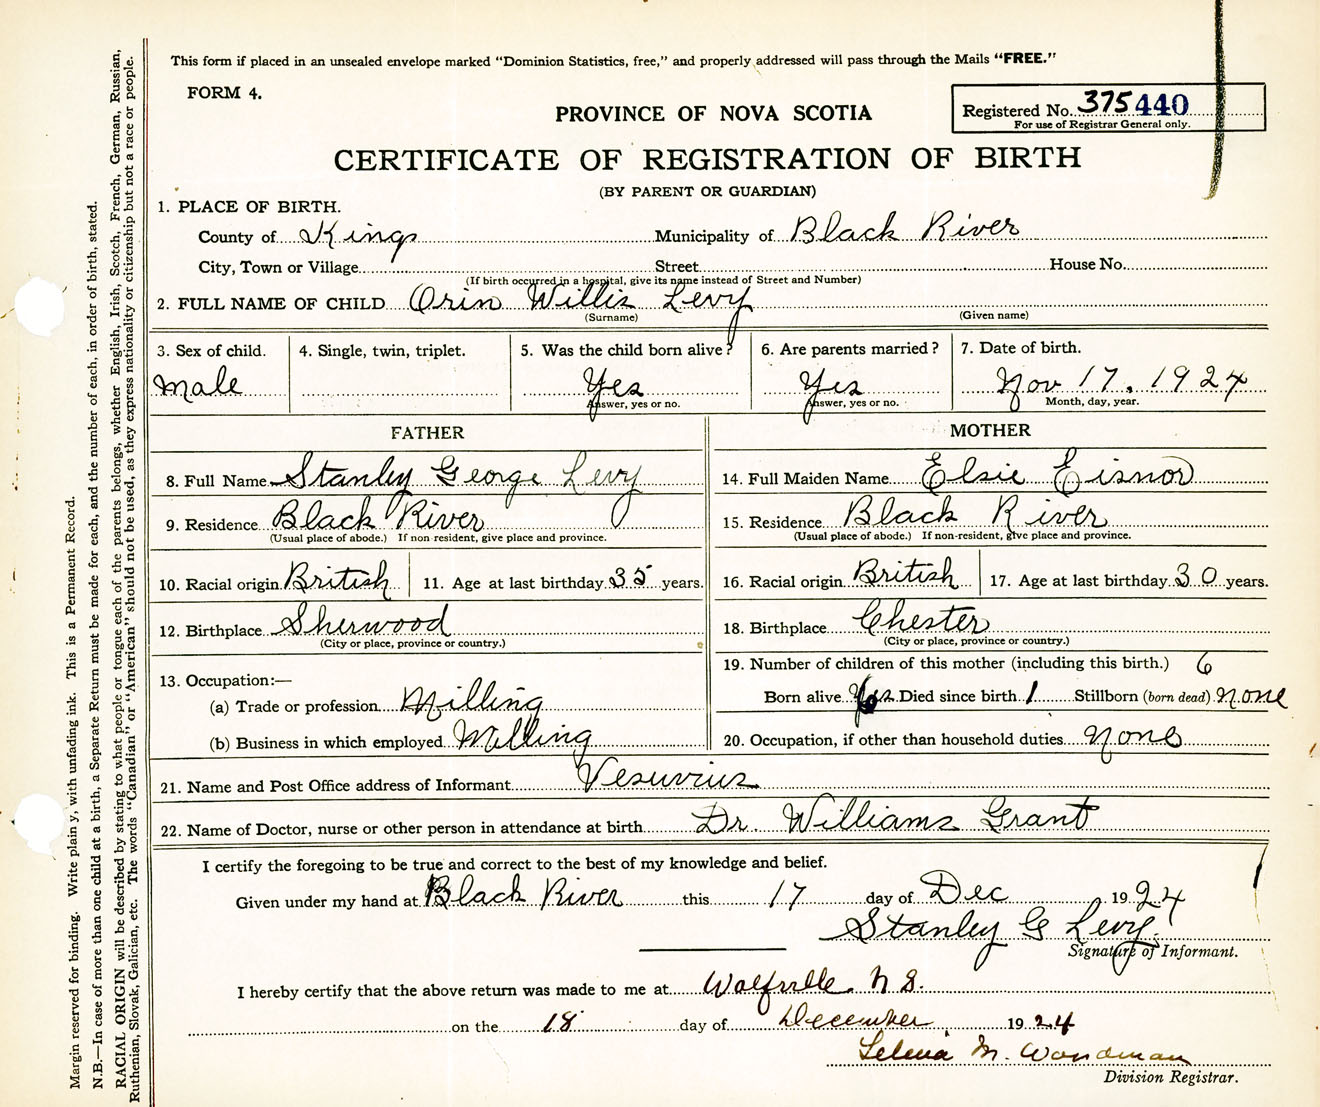 This form if placed in an unsealed envelope marked "Dominion Statistics, free," and properly addressed will pass through the Mails "FREE."
FORM 4.
PROVINCE OF NOVA SCOTIA
Registered No. 375440
For use of Registrar General only.
CERTIFICATE OF REGISTRATION OF BIRTH
(BY PARENT OR GUARDIAN)
1. PLACE OF BIRTH.
County of Kings Municipality of Black River
City, Town or Village Street House No.
(If birth occurred in a hospital, give its name instead of Street and Number)
2. FULL NAME OF CHILD Orin Willis Levy
(Surname) (Given name)
3. Sex of child. 4. Single, twin, triplet. 5. Was the child born alive? 6. Are parents married? 7. Date of birth.
Male Yes Yes Nov 17, 1924
Answer, yes or no. Answer, yes or no. Month, day, year.
FATHER MOTHER
8. Full Name Stanley George Levy 14. Full Maiden Name Elsie Eisnor
9. Residence Black River 15. Residence Black River
(Usual place of abode.) If non-resident, give place and province. (Usual place of abode.) If non-resident, give place and province.
10. Racial origin British 11. Age at last birthday 35 years. 16. Racial origin British 17. Age at last birthday 30 years.
12. Birthplace Sherwood 18. Birthplace Chester
(City or place, province or country.) (City or place, province or country.)
19. Number of children of this mother (including this birth.) 6
13. Occupation:—
(a) Trade or profession Milling Born alive Died since birth 1 Stillborn (born dead) None
(b) Business in which employed Milling 20. Occupation, if other than household duties None
21. Name and Post Office address of Informant Vesuvius
22. Name of Doctor, nurse or other person in attendance at birth Dr. Williams Grant
I certify the foregoing to be true and correct to the best of my knowledge and belief.
Given under my hand at Black River this 17 day of Dec 1924
Stanley G Levy.
Signature of Informant.
I hereby certify that the above return was made to me at Wolfville N S.
on the 18 day of December 1924
M. Woodman
Division Registrar.
Margin reserved for binding. Write plainly, with unfading ink. This is a Permanent Record.
N.B.—In case of more than one child at a birth, a Separate Return must be made for each, and the number of each, in order of birth, stated.
RACIAL ORIGIN will be described by stating to what people or tongue each of the parents belongs, whether English, Irish, Scotch, French, German, Russian,
Ruthenian, Slovak, Galician, etc. The words "Canadian" or "American" should not be used, as they express nationality or citizenship but not a race or people.